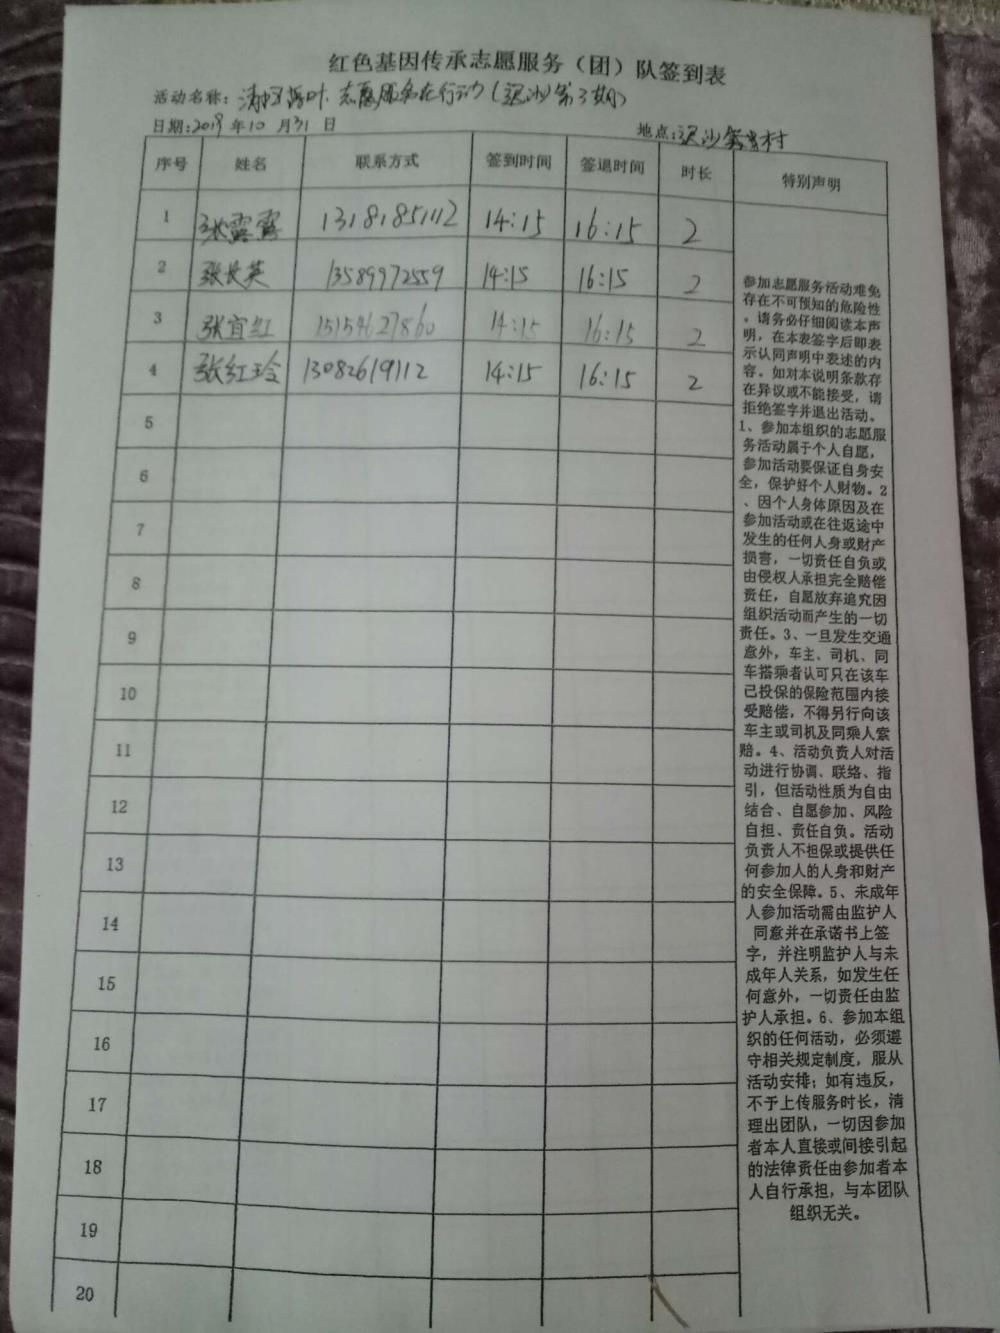 红色基因传承志愿服务（团）队签到表
活动名称：清扫落叶 志愿服务在行动（泥沙第3期）
日期：2019年10月31日
地点：泥沙 村
序号 姓名 联系方式 签到时间 签退时间 时长 特别声明
1 张露露 13181851112 14:15 16:15 2
2 张长英 13589972559 14:15 16:15 2
3 张宜红 15154627860 14:15 16:15 2
4 张红玲 13082619112 14:15 16:15 2
5
6
7
8
9
10
11
12
13
14
15
16
17
18
19
20
参加志愿服务活动难免
存在不可预知的危险性
。请务必仔细阅读本声
明，在本表签字后即表
示认同声明中表述的内
容。如对本说明条款存
在异议或不能接受，请
拒绝签字并退出活动。
1、参加本组织的志愿服
务活动属于个人自愿，
参加活动要保证自身安
全，保护好个人财物。2
、因个人身体原因及在
参加活动或在往返途中
发生的任何人身或财产
损害，一切责任自负或
由侵权人承担完全赔偿
责任，自愿放弃追究因
组织活动而产生的一切
责任。3、一旦发生交通
意外，车主、司机、同
车搭乘者认可只在该车
已投保的保险范围内接
受赔偿，不得另行向该
车主或司机及同乘人索
赔。4、活动负责人对活
动进行协调、联络、指
引，但活动性质为自由
结合、自愿参加、风险
自担、责任自负。活动
负责人不担保或提供任
何参加人的人身和财产
的安全保障。5、未成年
人参加活动需由监护人
同意并在承诺书上签
字，并注明监护人与未
成年人关系，如发生任
何意外，一切责任由监
护人承担。6、参加本组
织的任何活动，必须遵
守相关规定制度，服从
活动安排；如有违反，
不于上传服务时长，清
理出团队，一切因参加
者本人直接或间接引起
的法律责任由参加者本
人自行承担，与本团队
组织无关。